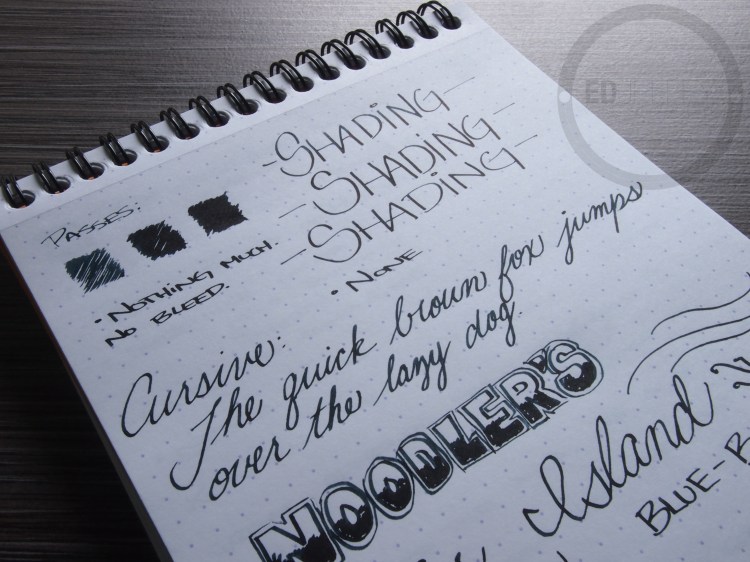 ED
PASSES:
-SHADING-
-SHADING-
-SHADING-
• NOTHING MUCH.
NO BLEED.
• NONE
Cursive:
The quick brown fox jumps
over the lazy dog.
NOODLER'S
Island
BLUE-B